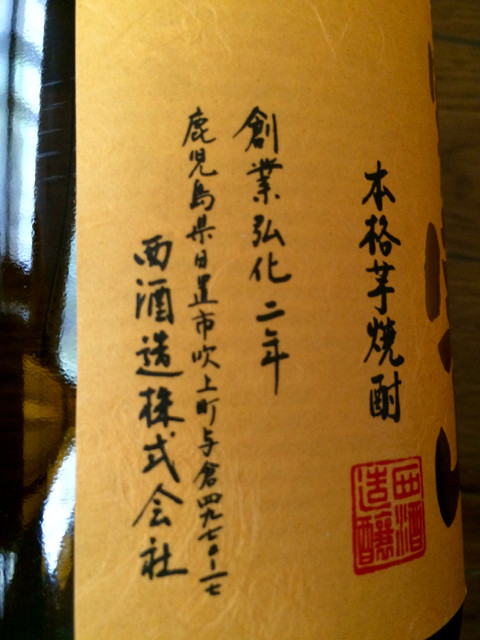 本格芋焼酎
西酒造醸
創業弘化二年
鹿児島県日置市吹上町与倉四九七〇-一七
西酒造株式会社